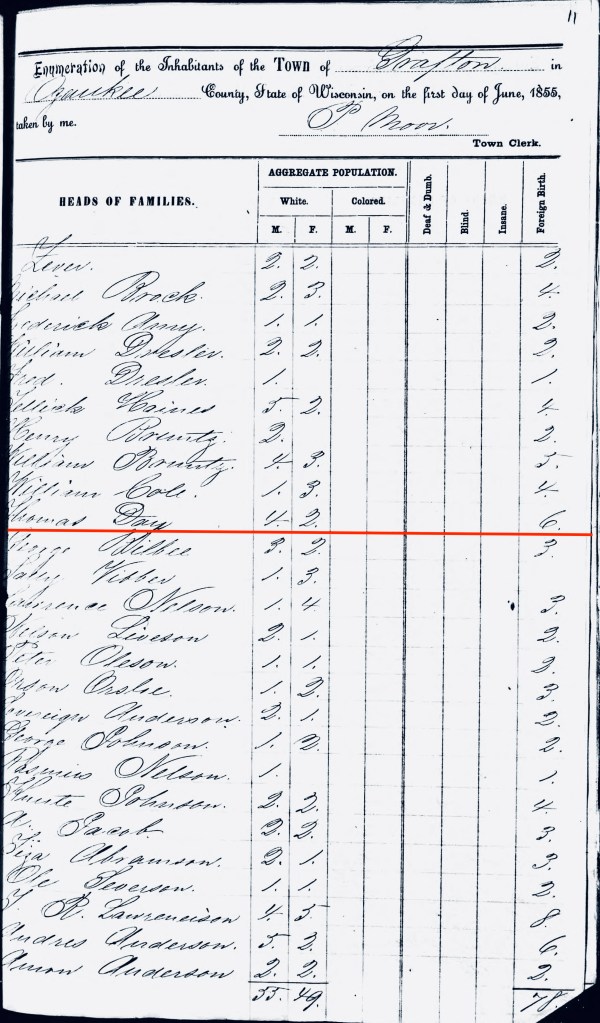 11
Enumeration of the Inhabitants of the Town of Grafton in
Ozaukee County, State of Wisconsin, on the first day of June, 1855,
taken by me. P Moor.
Town Clerk.
HEADS OF FAMILIES. AGGREGATE POPULATION. Deaf & Dumb. Blind. Insane. Foreign Birth.
White. Colored.
M. F. M. F.
2. 2. 2.
Brock. 2. 3. 4.
Amy. 1. 1. 2.
William Dresler. 2. 2. 2.
Fred. Dresler. 1. 1.
Haines 5. 2. 4.
Henry Brentz. 2. 2.
William Brentz. 4. 3. 5.
William Cole. 1. 3. 4.
Thomas Day 4. 2. 6.
George 3. 2. 3.
1. 3.
Lawrence Nelson. 1. 4. 3.
Nelson 2. 1. 2.
Peter Oleson. 1. 1. 2.
1. 2. 3.
Anderson. 2. 1. 2.
George Johnson. 1. 2. 2.
Nelson 1. 1.
Johnson. 2. 2. 4.
Jacob. 2. 2. 3.
Abramson. 2. 1. 3.
Ole Severson. 1. 1. 2.
R. 4. 5. 8.
Andres Anderson. 5. 2. 6.
Anderson 2. 2. 2.
55. 49. 78.